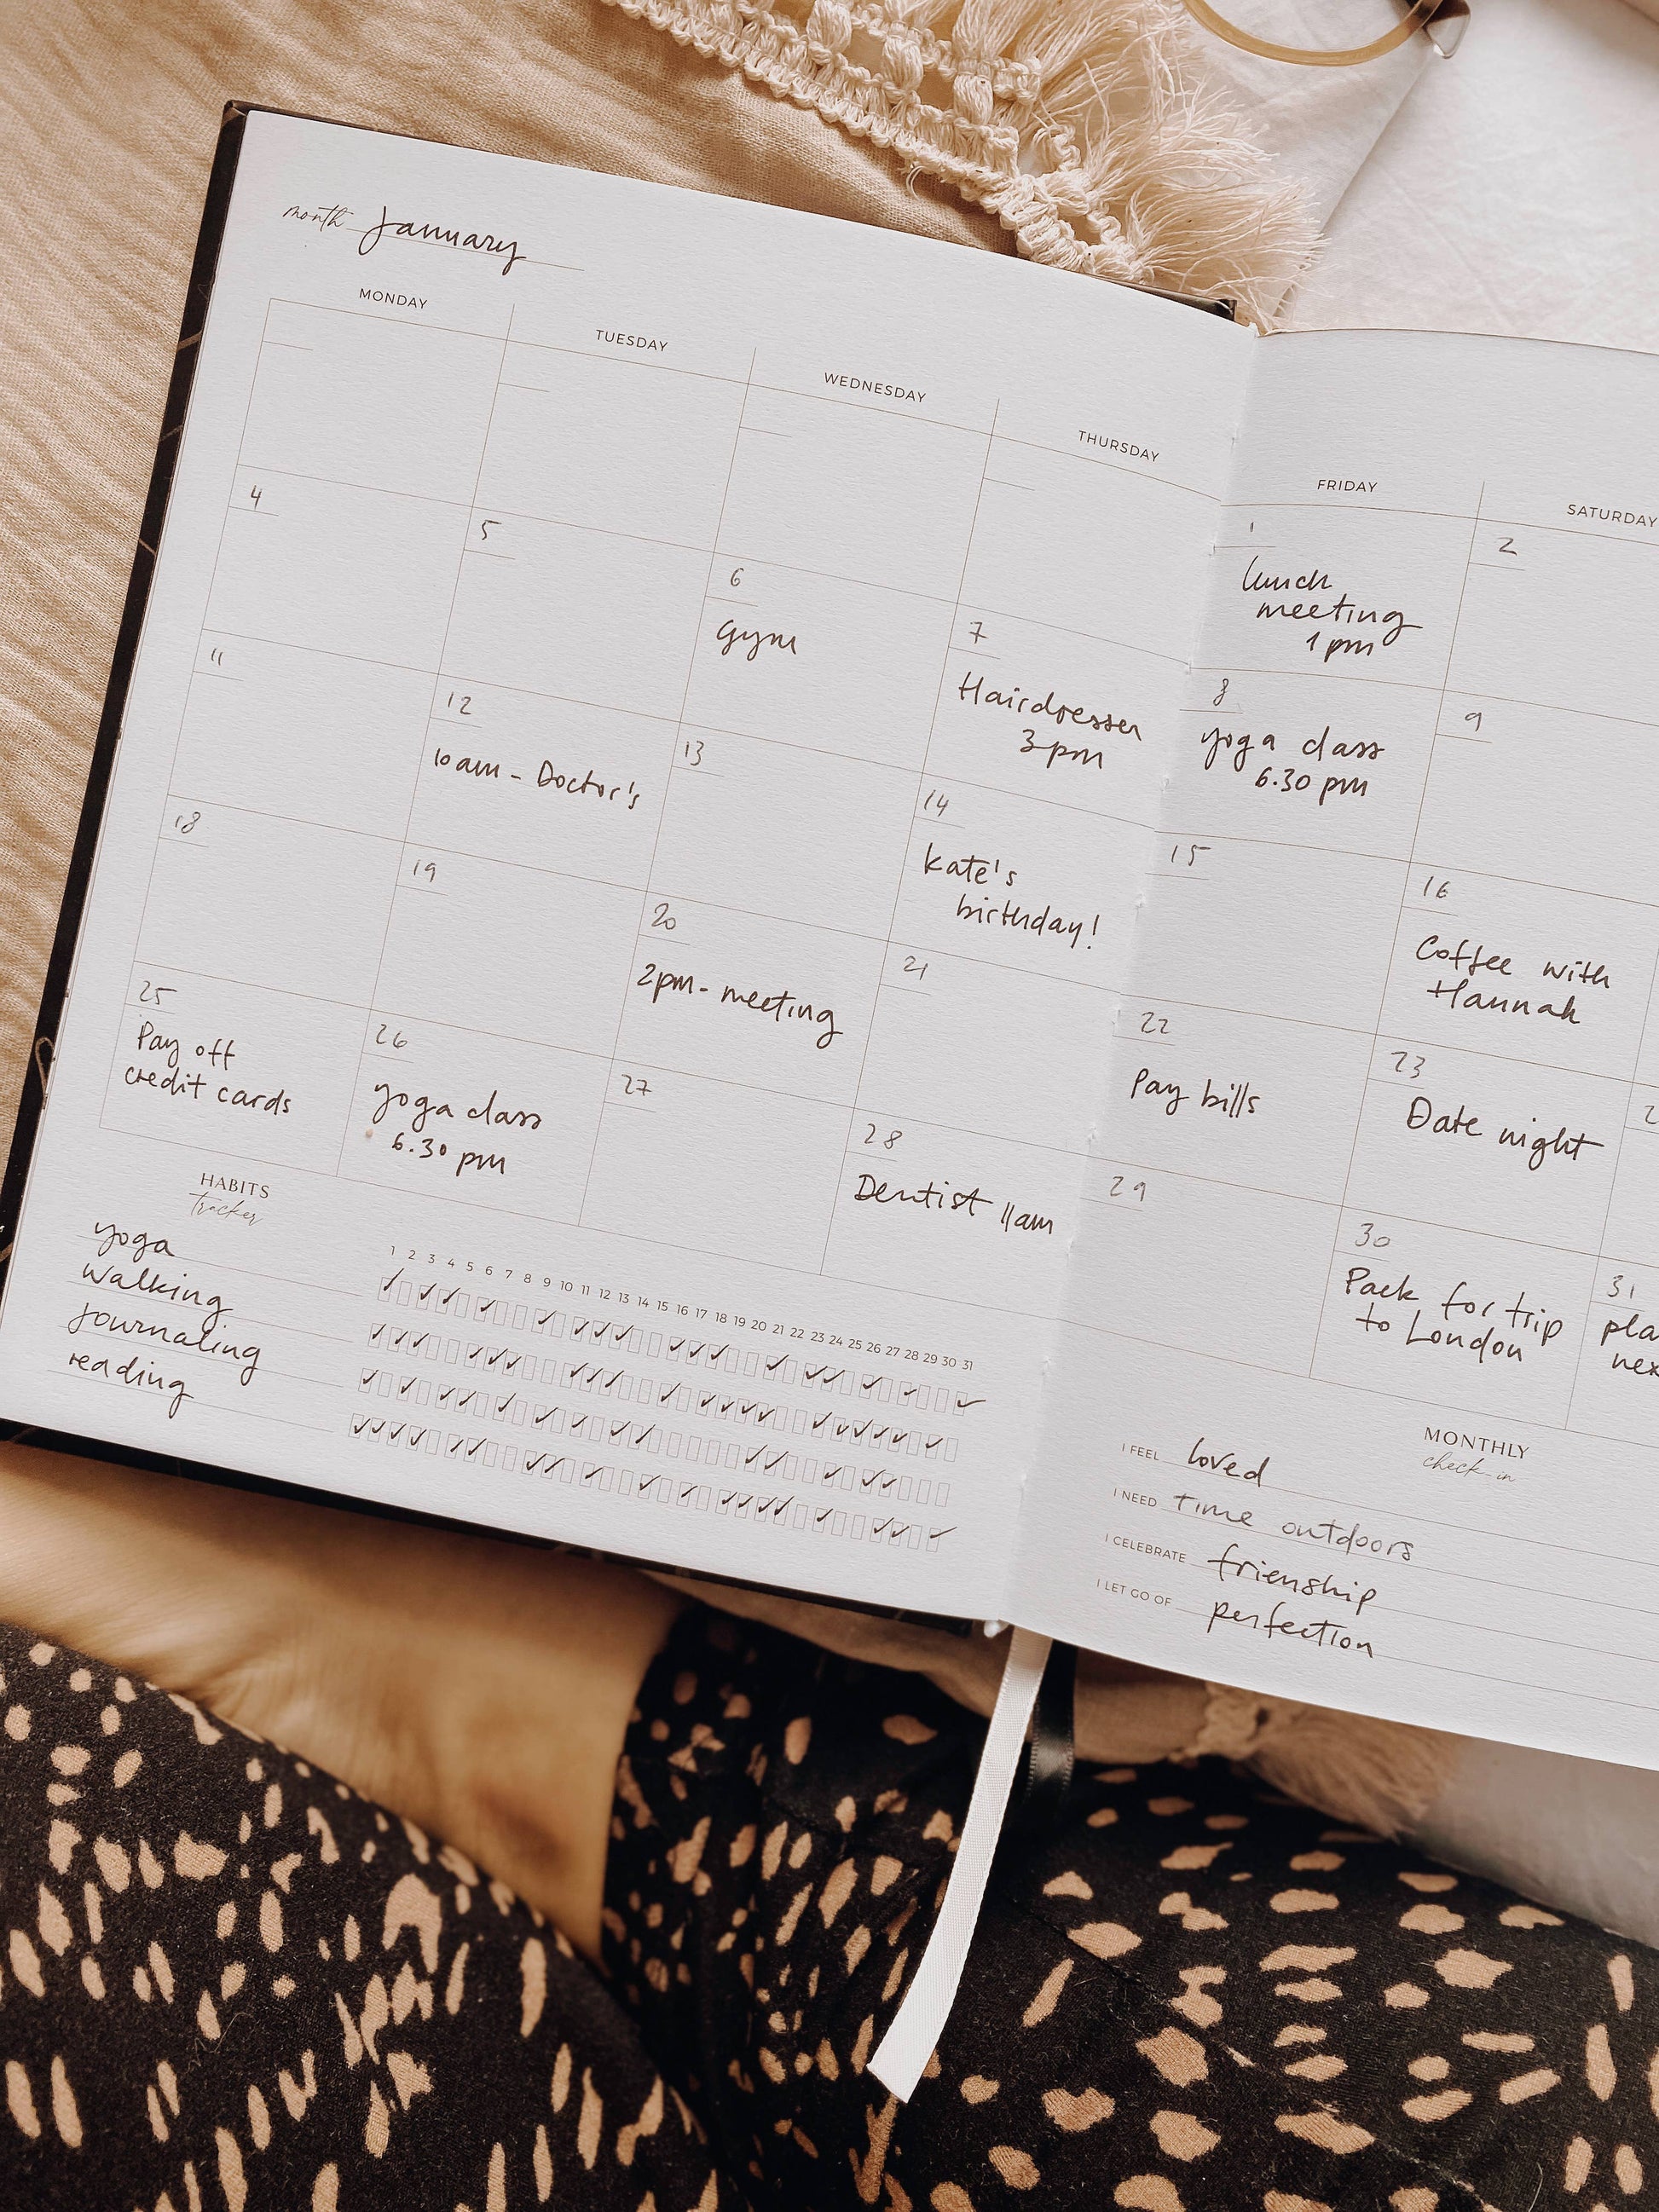 month January
MONDAY
TUESDAY
WEDNESDAY
THURSDAY
FRIDAY
SATURDAY
1
lunch
meeting
1 pm
2
4
5
6
Gym
7
Hairdresser
3pm
8
yoga class
6.30 pm
9
11
12
10am - Doctor's
13
14
Kate's
birthday!
15
16
Coffee with
Hannah
18
19
20
2pm- meeting
21
22
Pay bills
23
Date night
25
Pay off
credit cards
26
yoga class
6.30 pm
27
28
Dentist 11am
29
30
Pack for trip
to London
31
HABITS
tracker
1 2 3 4 5 6 7 8 9 10 11 12 13 14 15 16 17 18 19 20 21 22 23 24 25 26 27 28 29 30 31
yoga
walking
journaling
reading
MONTHLY
check in
I FEEL loved
I NEED time outdoors
I CELEBRATE frienship
I LET GO OF perfection